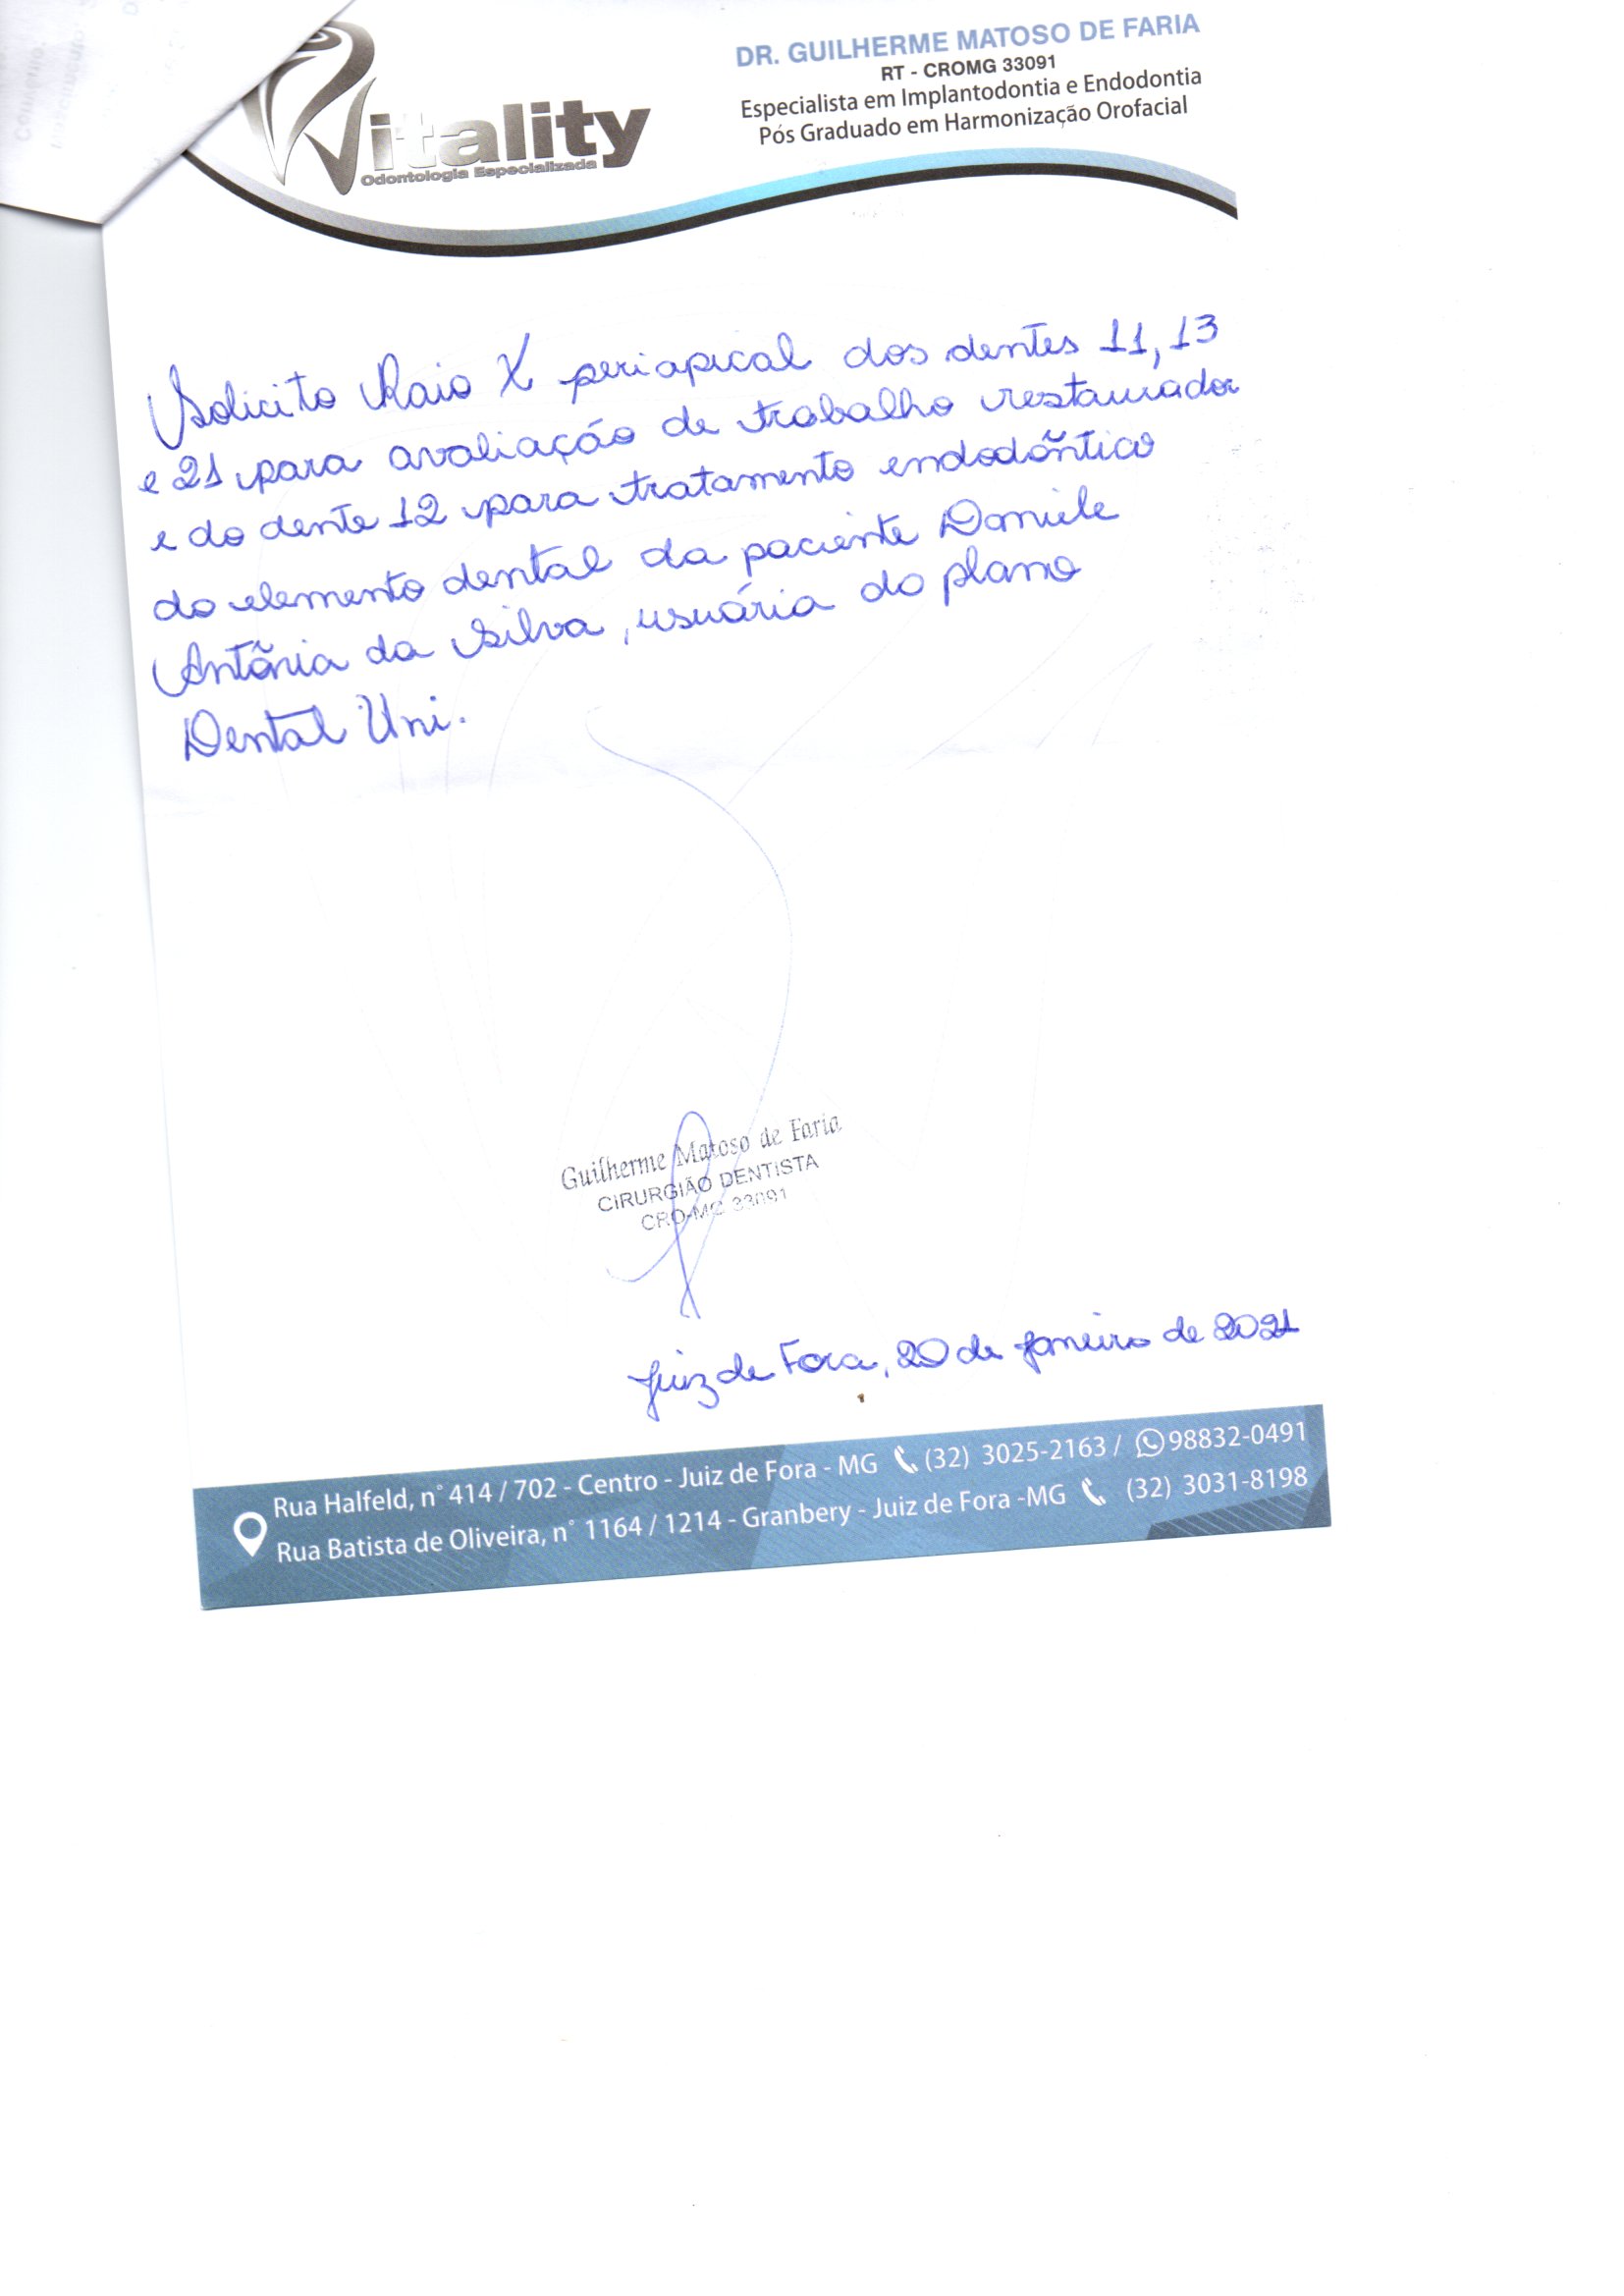 Vitality
Odontologia Especializada
DR. GUILHERME MATOSO DE FARIA
RT - CROMG 33091
Especialista em Implantodontia e Endodontia
Pós Graduado em Harmonização Orofacial
Solicito Raio X periapical dos dentes 11, 13
e 21 para avaliação de trabalho restaurador
e do dente 12 para tratamento endodôntico
do elemento dental da paciente Daniele
Antônia da Silva, usuária do plano
Dental Uni.
Guilherme Matoso de Faria
CIRURGIÃO DENTISTA
CRO-MG 33091
Juiz de Fora, 20 de Janeiro de 2021
Rua Halfeld, n° 414 / 702 - Centro - Juiz de Fora - MG (32) 3025-2163 / 98832-0491
Rua Batista de Oliveira, n° 1164 / 1214 - Granbery - Juiz de Fora -MG (32) 3031-8198